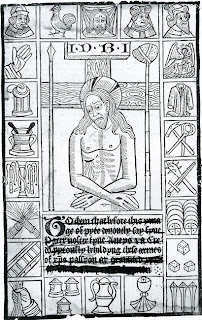 I·D·B·I
To them that before this yma
ge of pyte deuoutly say fyue
Pater noster fyue Aueys & a Cre
pyteously beholdyng these armes
of xps passyon ar graunted